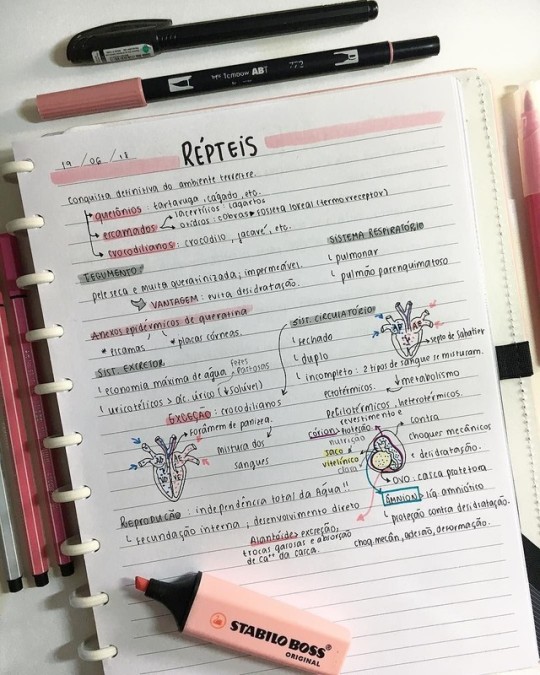 Tombow ABT 772
19 / 06 / 18
RÉPTEIS
conquista definitiva do ambiente terrestre.
queiônios: tartaruga, cágado, etc.
escamados
lacertílios: lagartos
ofídios: cobras → fosseta loreal (termorreceptor)
crocodilianos: crocodilo, jacaré, etc.
SISTEMA RESPIRATÓRIO
pulmonar
pulmão parenquimatoso
TEGUMENTO
pele seca e muita queratinizada; impermeável.
VANTAGEM: evita desidratação.
Anexos epidérmicos de queratina
escamas
placas córneas.
SIST. CIRCULATÓRIO
fechado
duplo
incompleto: 2 tipos de sangue se misturam.
AD
AE
septo de Sabatier
ectotérmicos.
metabolismo
Pecilotérmicos, heterotérmicos.
SIST. EXCRETOR
economia máxima de água
Fezes pastosas
uricotélicos > ác. úrico (↓ solúvel)
EXCEÇÃO: crocodilianos
forâmem de panizza.
mistura dos
sangues
Córion: proteção, revestimento e
nutrição
contra
choques mecânicos
e desidratação.
saco
vitelínico
clara
OVO: casca protetora
ÂMNION > líq. amniótico
proteção contra desidratação.
choq. mecân, adesão, deformação.
REPRODUÇÃO: independência total da Água!!
fecundação interna; desenvolvimento direto
Alantóide > excreção,
trocas gasosas e absorção
de Ca⁺⁺ da casca.
STABILO BOSS
ORIGINAL